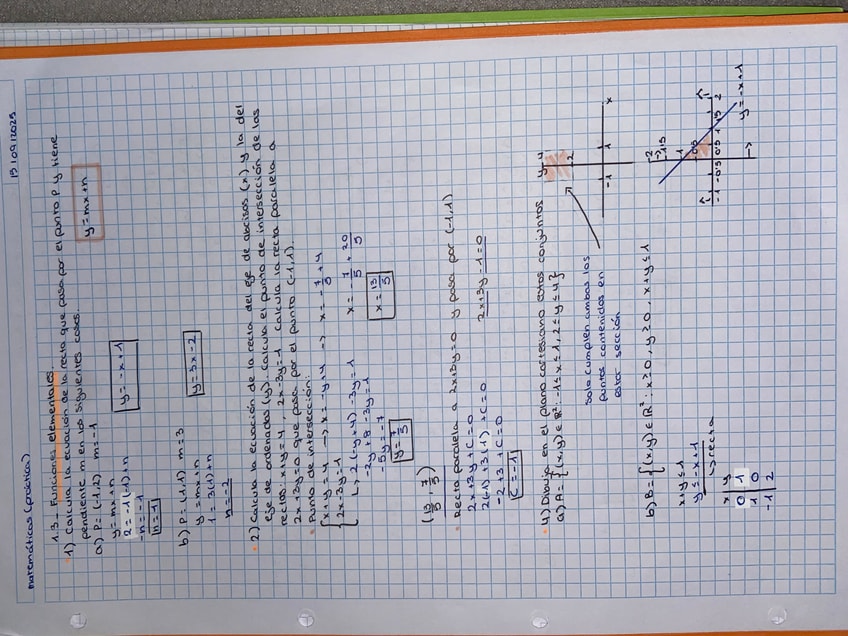 matemáticas (práctica)
15/09/2025
1.3. Funciones elementales.
1) Calcula la ecuación de la recta que pasa por el punto P y tiene
pendiente m en los siguientes casos.
y=mx+n
a) P=(-1,2) m=-1
y=mx+n
2=-1(1)+n
-n=-1
n=1
y=-x+1
b) P=(1,1) m=3
y=mx+n
1=3(1)+n
n=-2
y=3x-2
2) Calcula la ecuación de la recta del eje de abcisas (x) y la del
eje de ordenadas (y). Calcula el punto de intersección de las
rectas: x+y=4, 2x-3y=1. Calcula la recta paralela a
2x+3y=0 que pasa por el punto (-1,1).
Punto de intersección:
x+y=4 → x=-y+4 → x=-7/5+4
2x-3y=1
2(-y+4)-3y=1
x=-7/5+20/5
-2y+8-3y=1
-5y=-7
x=13/5
y=7/5
(13/5, 7/5)
Recta paralela a 2x+3y=0 y pasa por (-1,1)
2x+3y+C=0
2(-1)+3(1)+C=0
2x+3y-1=0
-2+3+C=0
C=-1
4) Dibuja en el plano cartesiano estos conjuntos
a) A={(x,y)∈R²: -1≤x≤1, 2≤y≤4}
Solo cumplen ambas los
puntos contenidos en
esta sección
y
4
2
-1
1
x
b) B={(x,y)∈R²: x≥0, y≥0, x+y≤1
x+y≤1
y≤-x+1
→recta
x y
0 1
1 0
-1 2
2
1,5
1
0,5
-1 -0,5 0,5 1 1,5 2
y=-x+1